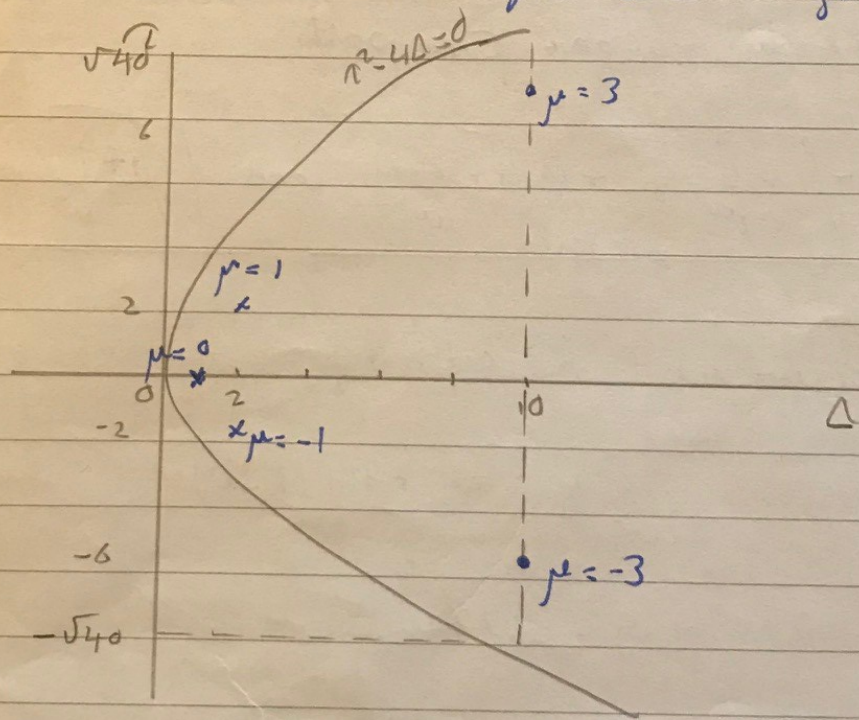 √40
τ²-4Δ=0
μ = 3
6
μ = 1
2
μ = 0
0
2
10
Δ
-2
μ = -1
-6
μ = -3
-√40